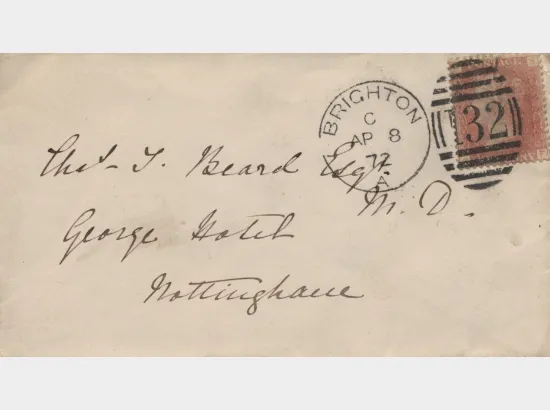 BRIGHTON
C
AP 8
72
A
132
Thos T. Beard Esqr
M. D.
George Hotel
Nottingham